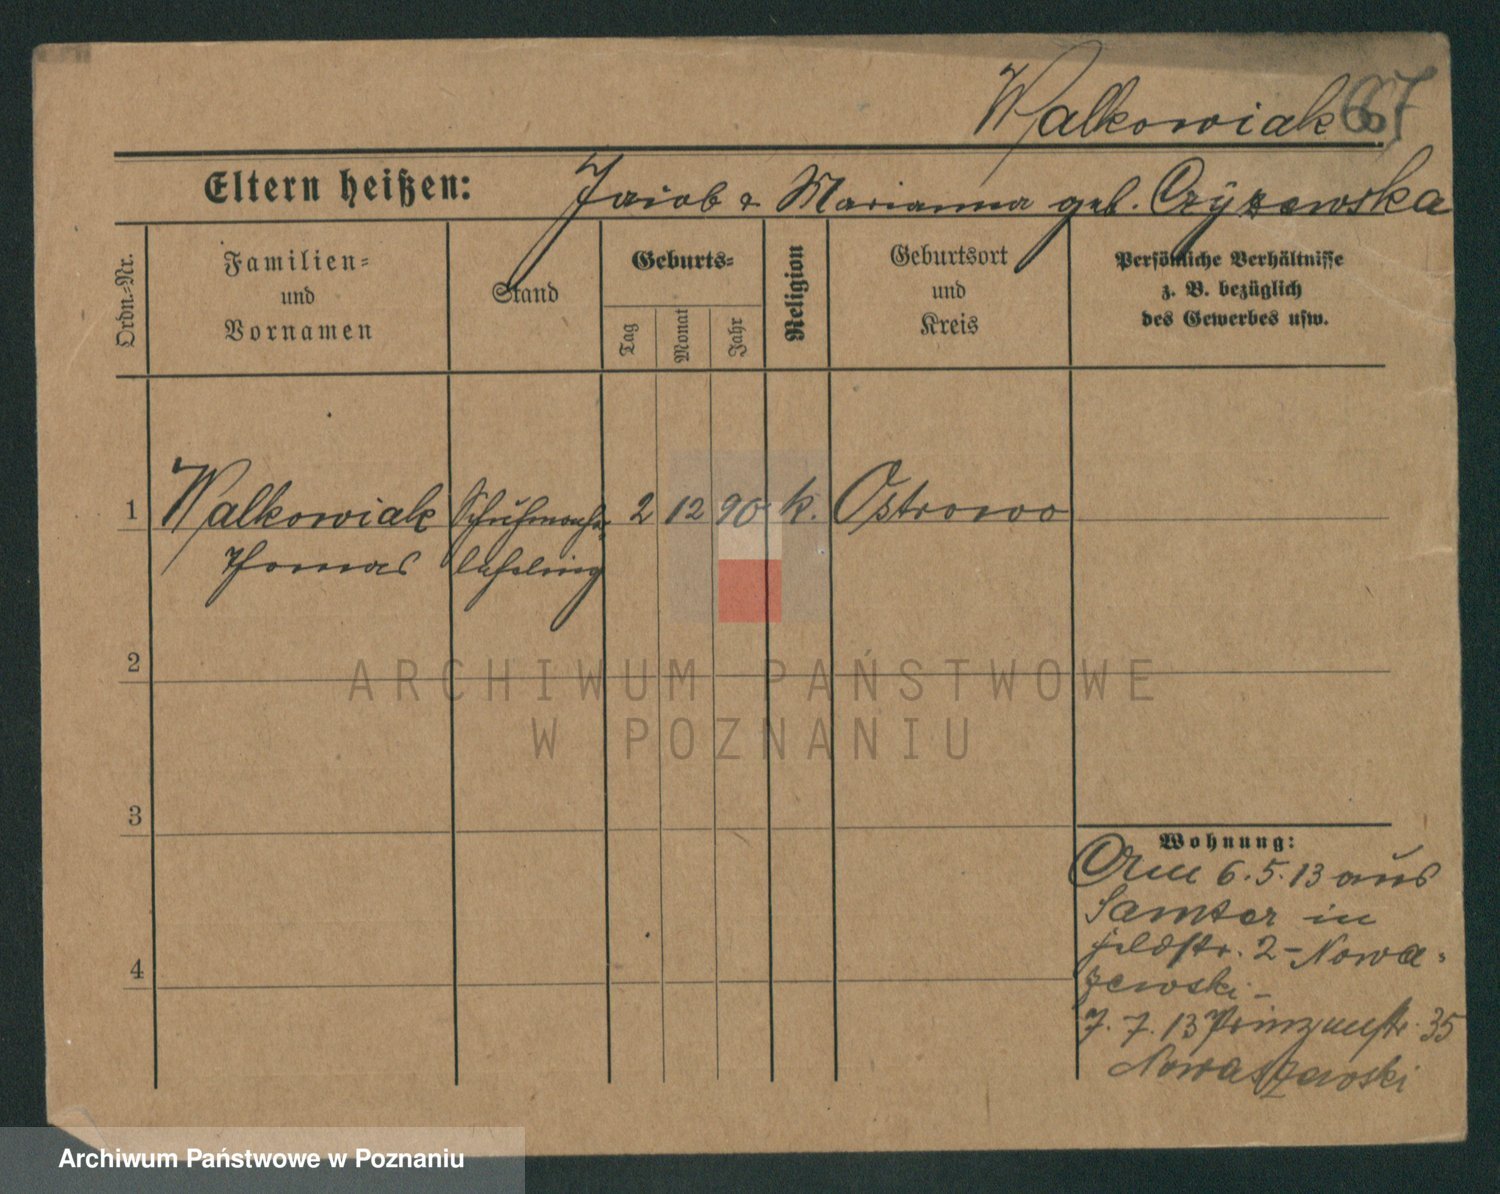 Walkowiak 667
Eltern heißen: Jakob & Marianna geb. Czyzewska
Ordn.-Nr.
Familien-
und
Vornamen
Stand
Geburts-
Tag
Monat
Jahr
Religion
Geburtsort
und
Kreis
Persönliche Verhältnisse
z. B. bezüglich
des Gewerbes usw.
1 Walkowiak Schuhmach- 2 12 90 k. Ostrowo
Thomas lehrling
2
ARCHIWUM PAŃSTWOWE
W POZNANIU
3
4
Wohnung:
Am 6.5.13 aus
Samter in
Feldstr. 2 - Nowa-
zewski -
7. 7. 13 Prinzenstr. 35
Nowaszewski
Archiwum Państwowe w Poznaniu